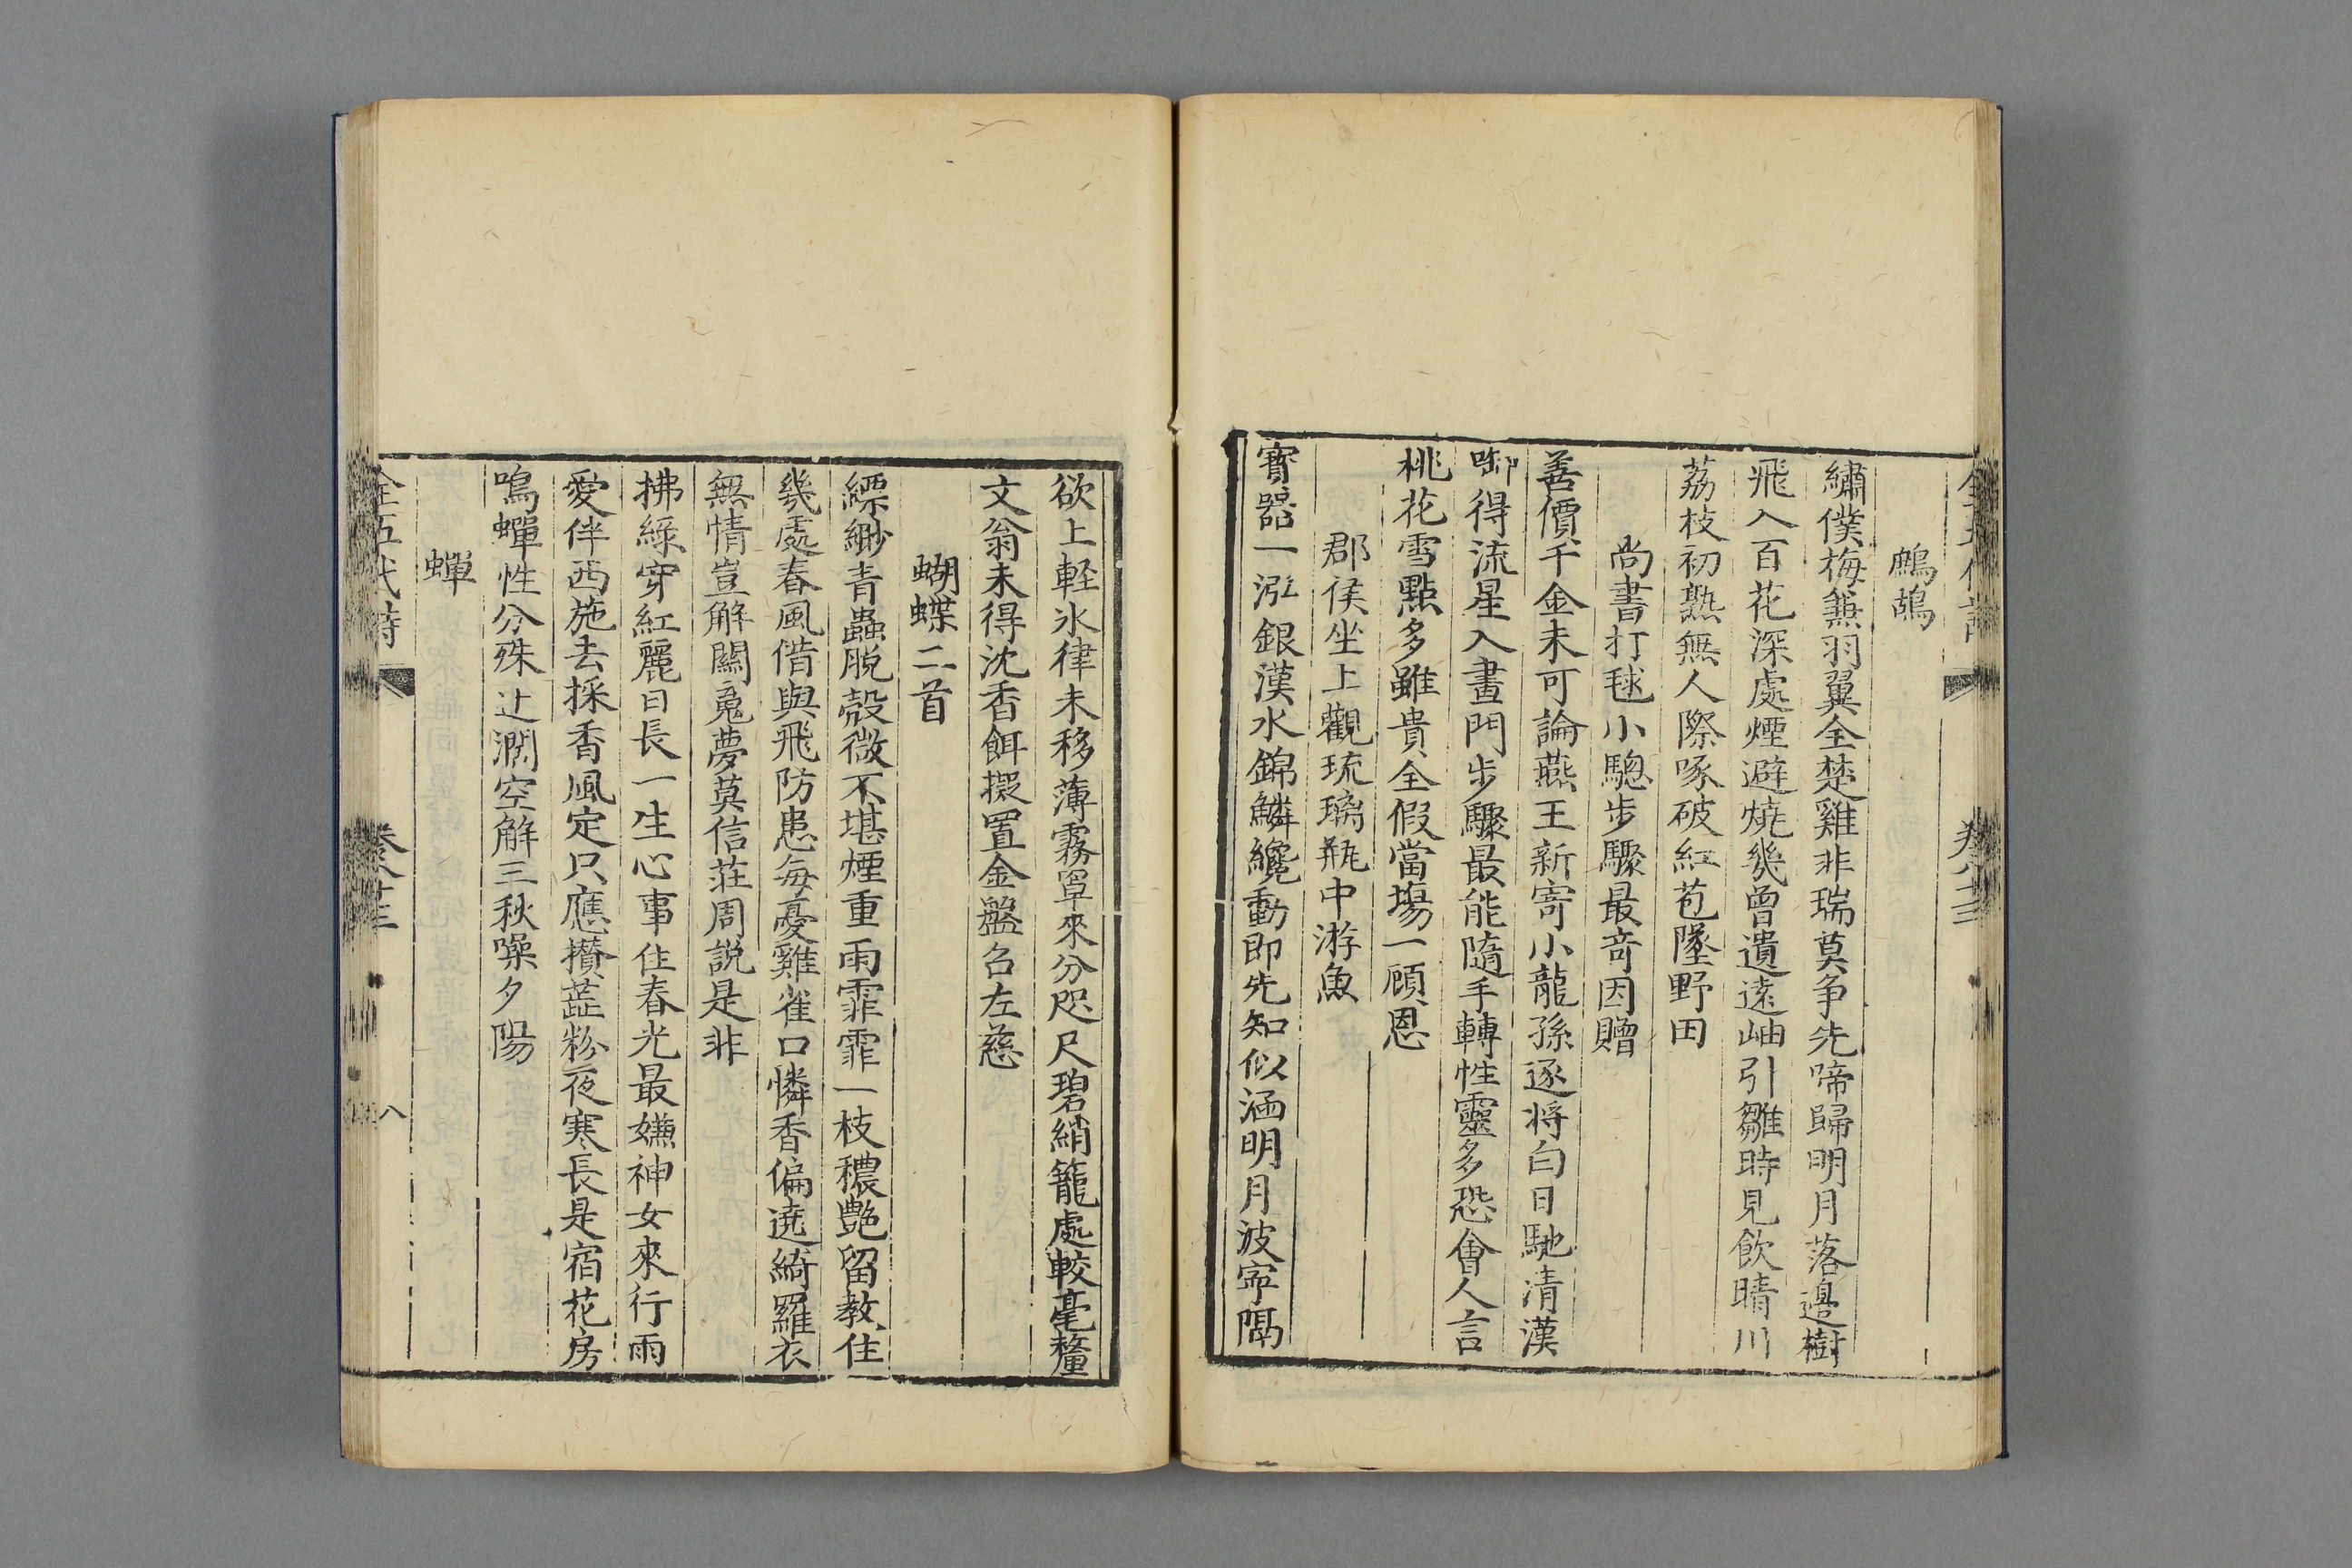 鷓鴣
繡僕梅兼羽翼全楚雞非瑞莫争先啼歸明月落邉樹
飛入百花深處煙避燒幾曾遺遠岫引雛時見飲晴川
荔枝初熟無人際啄破紅苞墜野田
尚書打毬小驄步驟最竒因贈
善價千金未可論燕王新寄小龍孫逐将白日馳清漢
啣得流星入畫門步驟最能隨手轉性靈多恐會人言
桃花雪點多雖貴全假當塲一顧恩
郡侯坐上觀琉璃瓶中游魚
寳器一泓銀漢水錦鱗纔動即先知似涵明月波寜隔
欲上輕氷律未移薄霧罩來分咫尺碧綃籠處較毫釐
文翁未得沈香餌擬置金盤召左慈
蝴蝶二首
縹緲青蟲脱殻微不堪煙重雨霏霏一枝穠艷留教住
幾處春風借與飛防患每憂雞雀口憐香偏遶綺羅衣
無情豈解關䰟夢莫信莊周説是非
拂綠穿紅麗日長一生心事住春光最嫌神女來行雨
愛伴西施去採香風定只應攢蘂粉夜寒長是宿花房
鳴蟬性分殊迂濶空解三秋噪夕陽
蟬
全五代詩
八